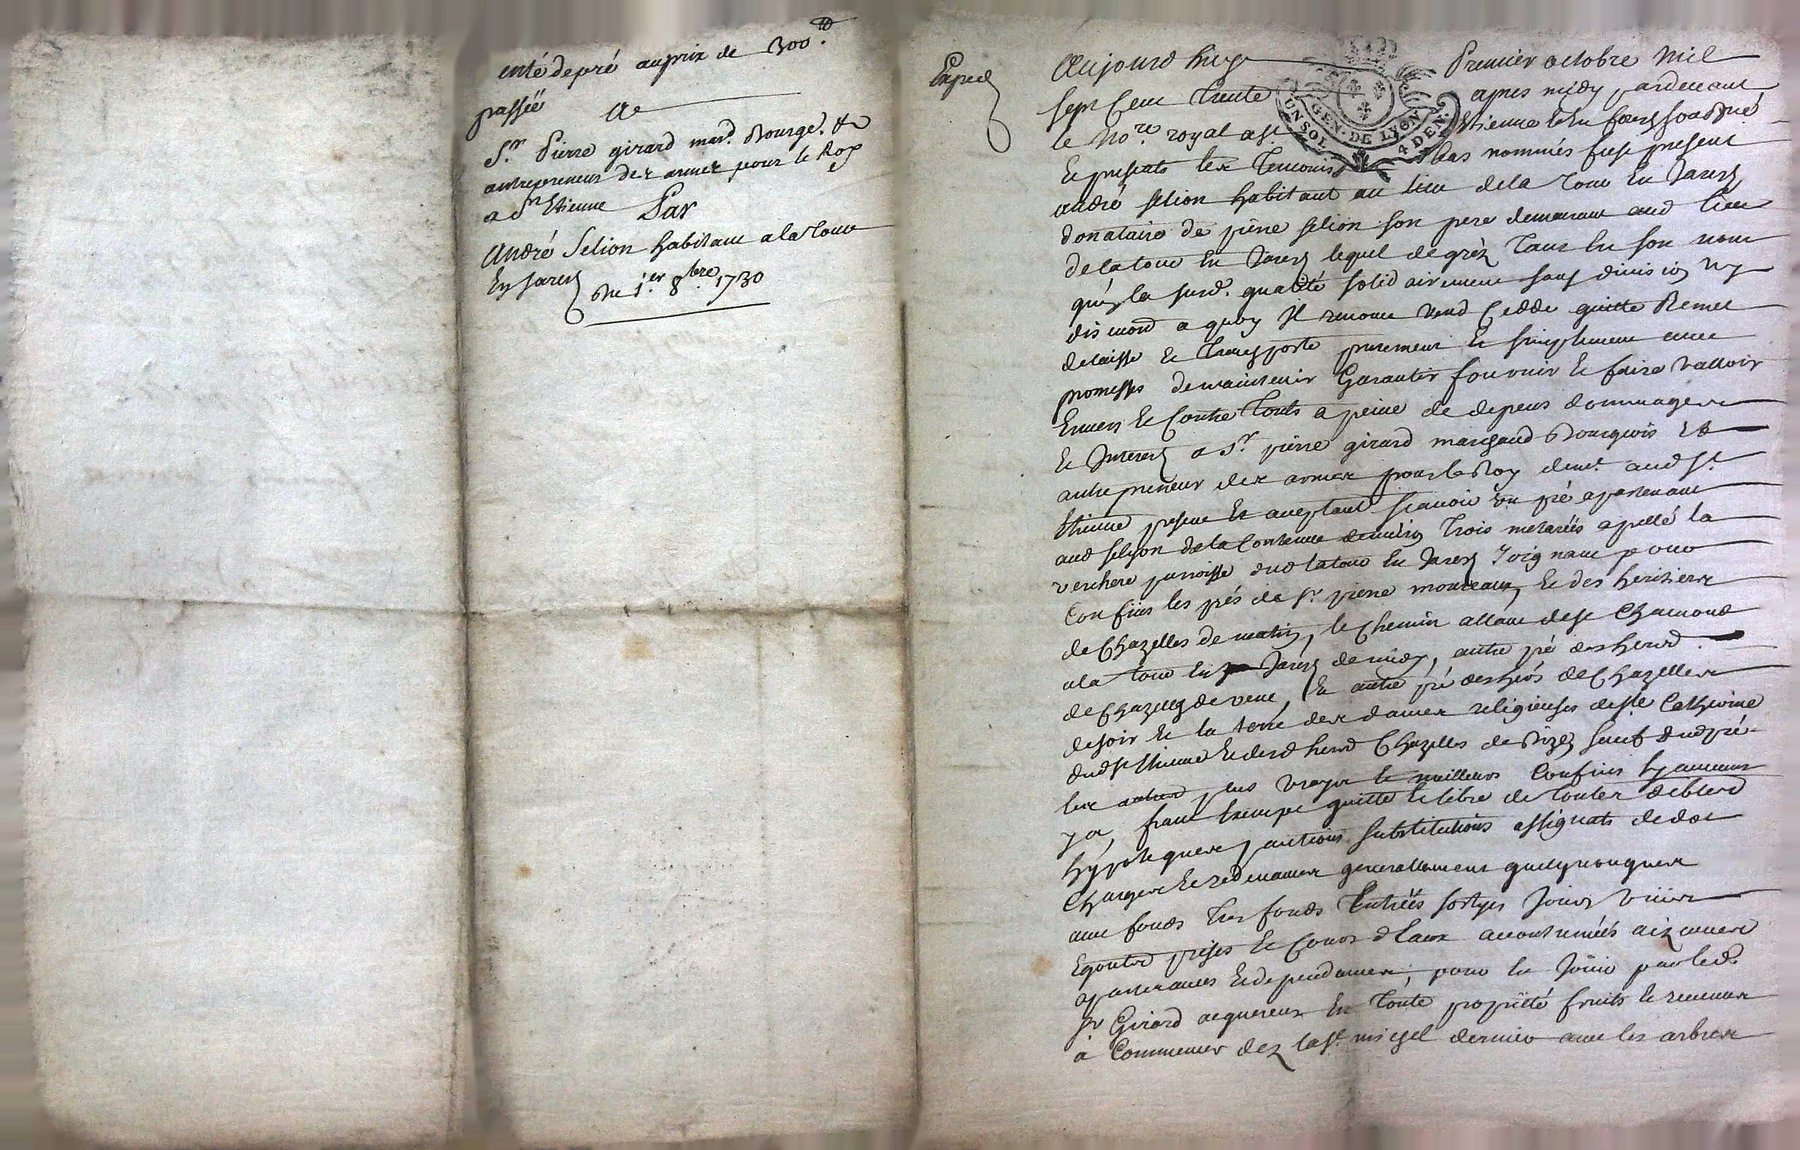 ente de pré au prix de 300 ₶
passée
A
Sr. Pierre girard mard. Bourgs. &
entrepreneur des armes pour le Roy
a St Etienne
Par
André Selion habitant a la Tour
En Jares
Du 1er 8bre. 1730
Exped
Aujourd huy Premier octobre Mil
sept Cent Trente apres midy, pardevant
le Nore. royal a St. Etienne En foress soussigné
Et presents les Temoins bas nommés fust present
andré selion habitant au lieu de la Tour En Jares
donataire de pierre selion son pere demeurant aud lieu
de la tour En Jares lequel de gréz Tant En son nom
qu'en la susd. qualité solidairement sans division ny
discution a quoy Il renonce Vend Cedde quitte Remet
delaisse Et Transporte purement Et simplement avec
promesses de maintenir Garantir fournir Et faire valloir
Envers Et Contre Touts a peine de depens dommages
Et Interests a Sr. pierre girard marchand Bourgeois Et
entrepreneur des armes pour le Roy demt. aud St.
Etienne present Et acceptant scavoir Un pré apartenant
aud selion de la Contenue d'environ Trois metanées apellé la
verchere parroisse dud la tour En Jares Joignant pour
Confins les prés de Sr. pierre et des heritiers
de Chazelles de matin, le Chemin allant de St Chamond
a la tour En Jares de midy, autre pré des herd.
de Chazelles de vent, Et autre pré des hers de Chazelles
de soir Et la terre des dames religieuses de Ste Catherine
dud St Etienne Et desd herd Chazelles de Bize sauf dud pré
les autres plus vrays Et meilleurs Confins sy aucuns
y a franc Exempt quitte Et libre de Toutes debtes
hypoteques pantions substitutions assignats de dot
Charges Et redevances generallement quelquonques
avec fonds Tres fonds Entrées sortyes Joires
Egouts prises Et Cours d'eaux accoutumées aizances
apartenances Et dependances, pour En Jouir par led.
Sr Girard acquereur En Toute proprieté fruits Et revenus
à Commencer dez la St. michel dernier avec les arbres
GEN. DE LYON
UN SOL. 4 DEN.